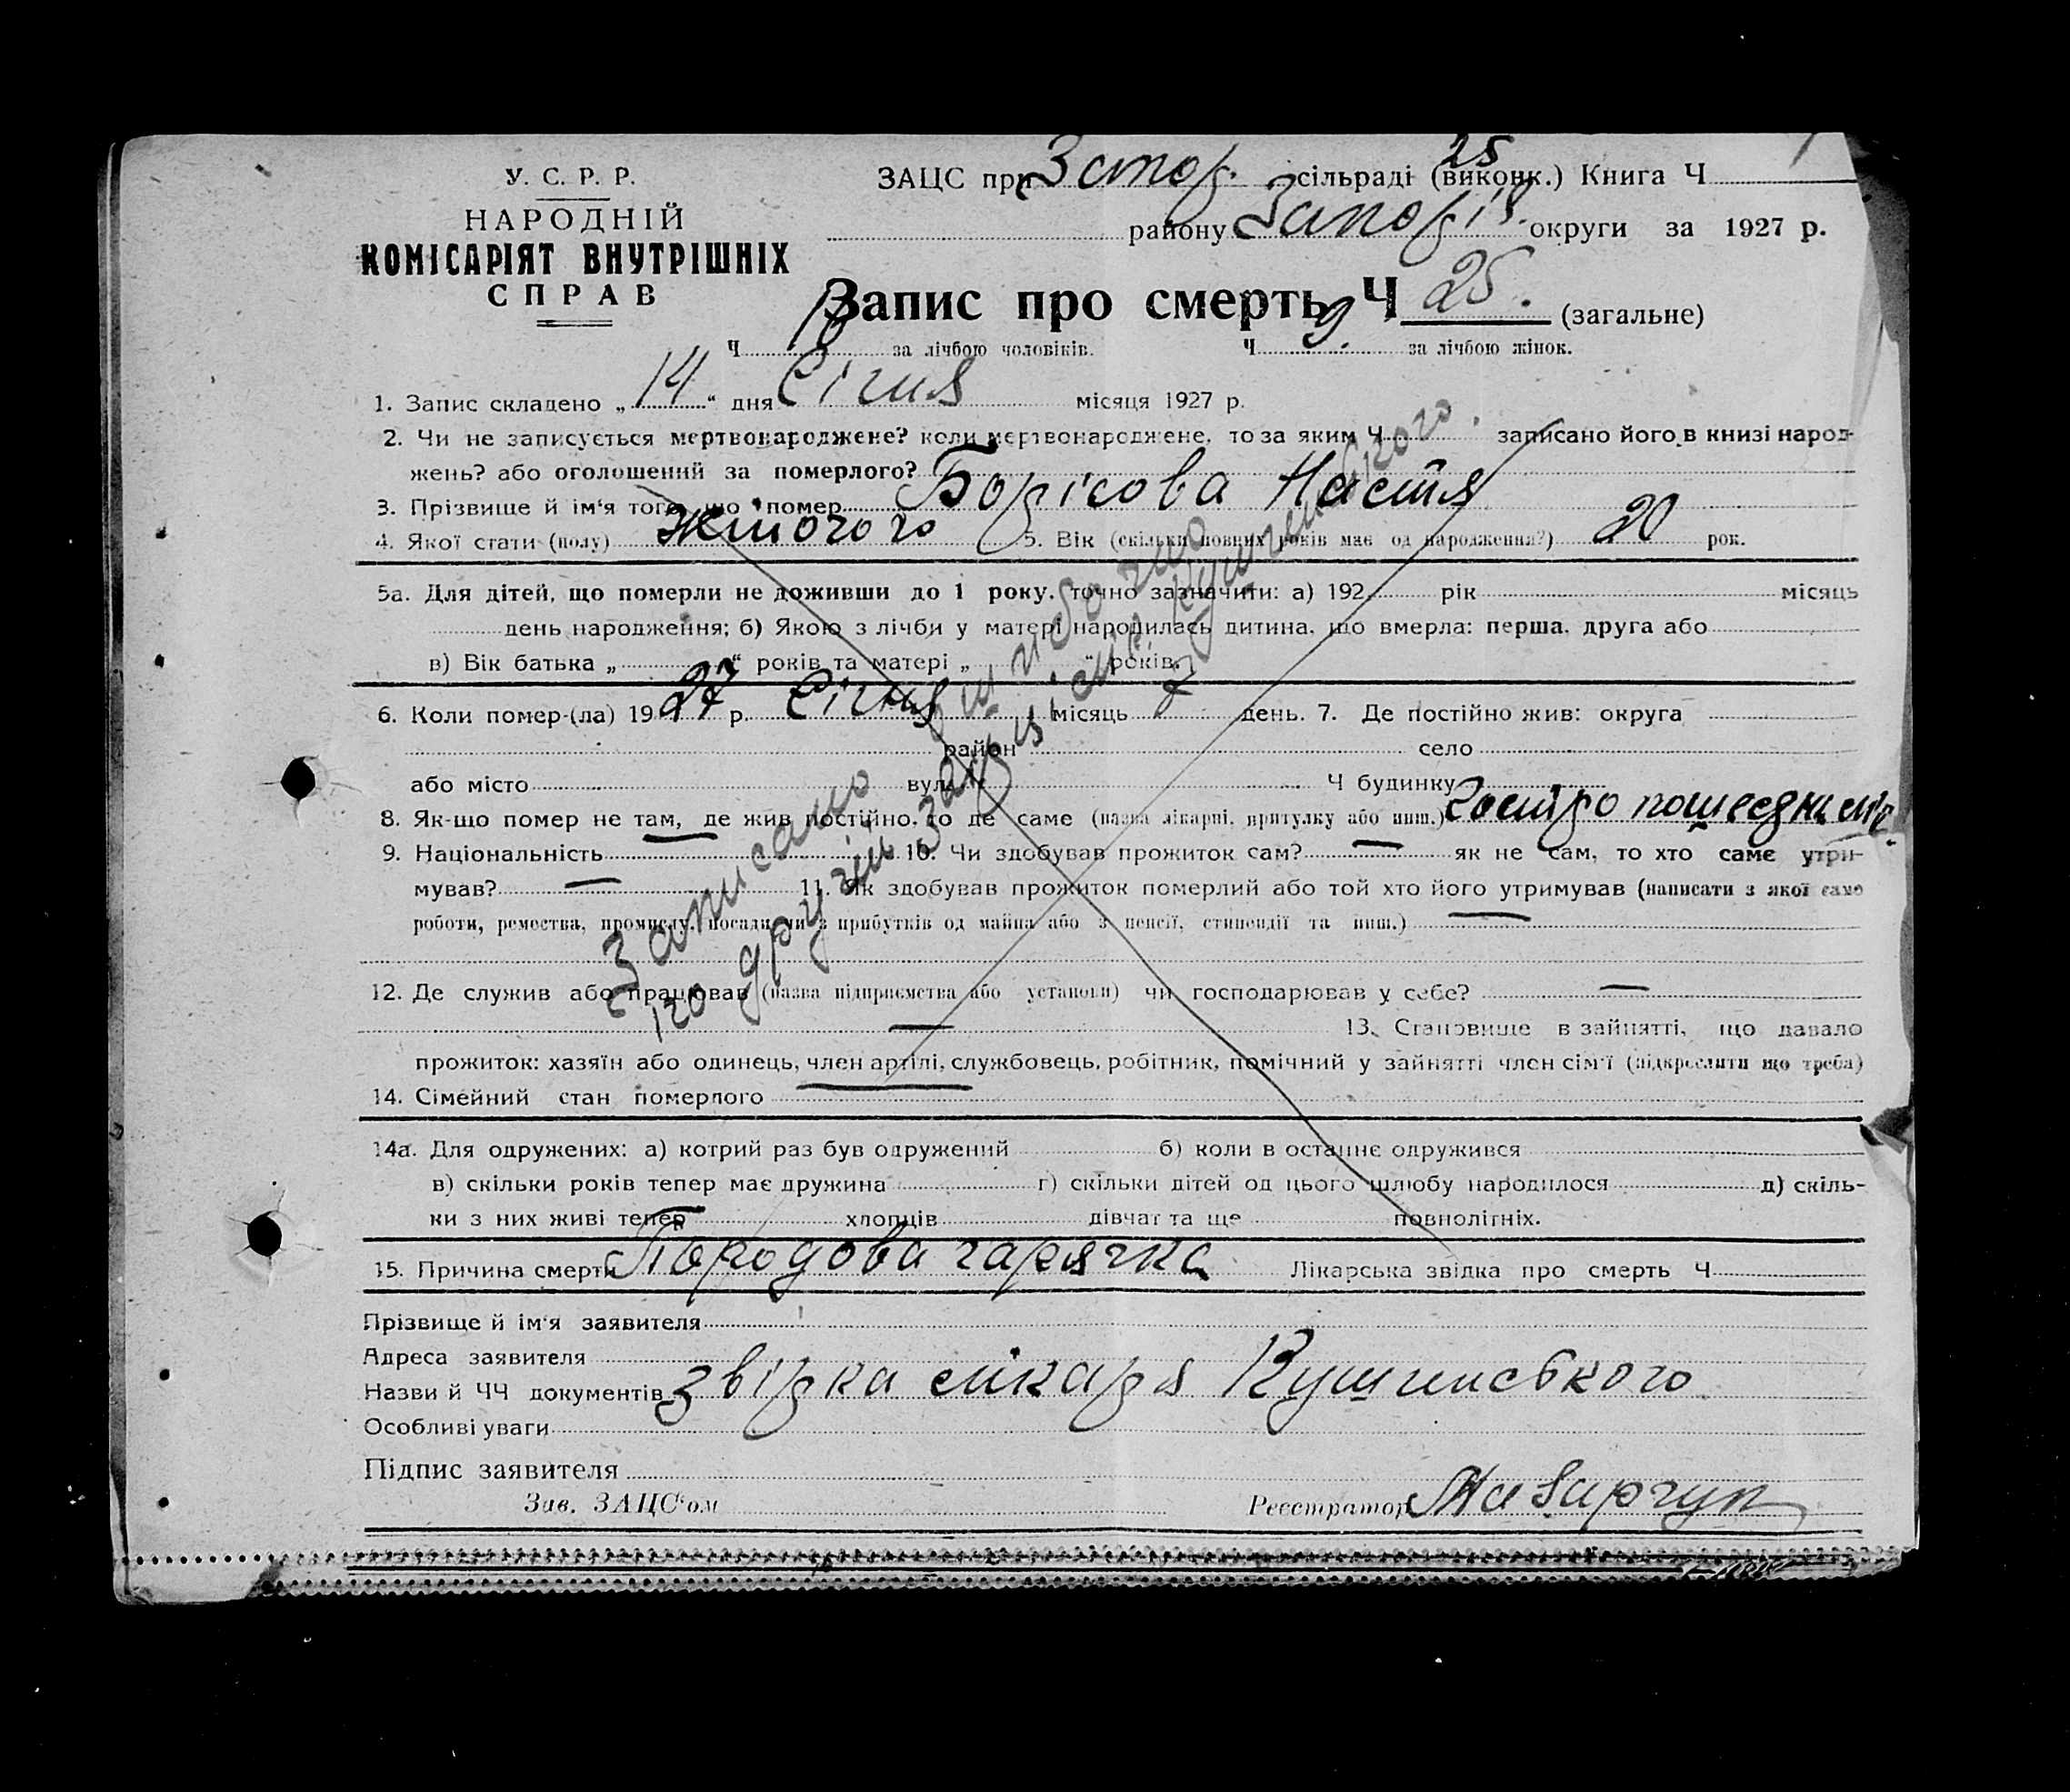 У. С. Р. Р.
НАРОДНІЙ
КОМІСАРІЯТ ВНУТРІШНІХ
СПРАВ
25
ЗАЦС при Запор. сільраді (виконк.) Книга Ч
району Запоріз. округи за 1927 р.
Запис про смерть Ч 25. (загальне)
Ч за лічбою чоловіків. Ч 9. за лічбою жінок.
1. Запис складено „14“ дня Січня місяця 1927 р.
2. Чи не записується мертвонароджене? коли мертвонароджене, то за яким Ч записано його в книзі народ-
жень? або оголошений за померлого?
3. Прізвище й ім'я того, що помер Борісова Настя
4. Якої стати (полу) жіночого 5. Вік (скільки повних років має од народження?) 20 рок.
5а. Для дітей, що померли не доживши до 1 року, точно зазначити: а) 192 рік місяць
день народження; б) Якою з лічби у матері народилась дитина, що вмерла: перша, друга або
в) Вік батька „ “ років та матері „ “ років.
6. Коли помер-(ла) 1927 р. Січня місяць 7 день. 7. Де постійно жив: округа
район село
або місто вул. Ч будинку
8. Як-що помер не там, де жив постійно, то де саме (назва лікарні, притулку або инш.)
9. Національність 10. Чи здобував прожиток сам? — як не сам, то хто саме утри-
мував? — 11. Як здобував прожиток померлий або той хто його утримував (написати з якої саме
роботи, ремества, промислу, посади чи з прибутків од майна або з пенсії, стипендії та инш.) —
12. Де служив або працював (назва підприємства або установи) чи господарював у себе? —
— 13. Становище в зайнятті, що давало
прожиток: хазяїн або одинець, член артілі, службовець, робітник, помічний у зайнятті член сім'ї (підкреслити що треба)
14. Сімейний стан померлого
14а. Для одружених: а) котрий раз був одружений б) коли в останнє одружився
в) скільки років тепер має дружина г) скільки дітей од цього шлюбу народилося д) скіль-
ки з них живі тепер хлопців дівчат та ще повнолітніх.
15. Причина смерти Породова гарячка Лікарська звідка про смерть Ч
Прізвище й ім'я заявителя
Адреса заявителя
Назви й ЧЧ документів звірка лікаря Кушинського
Особливі уваги
Підпис заявителя
Зав. ЗАЦС'ом Реєстратор
Записано помилково
по другій